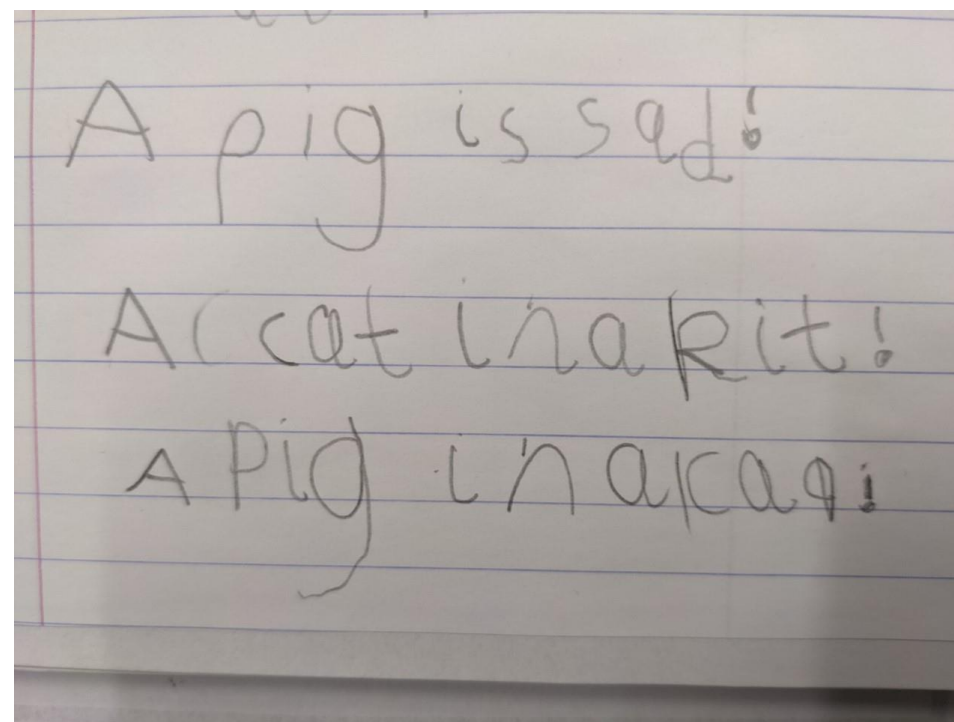 A pig is sad!
A ccat in a kit!
A Pig in a